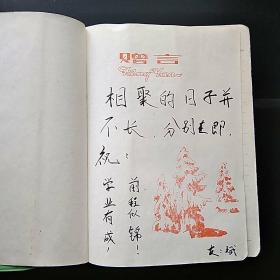 赠言
相聚的日子并
不长，分别在即.
祝：
学业有成！
前程似锦！
友：斌